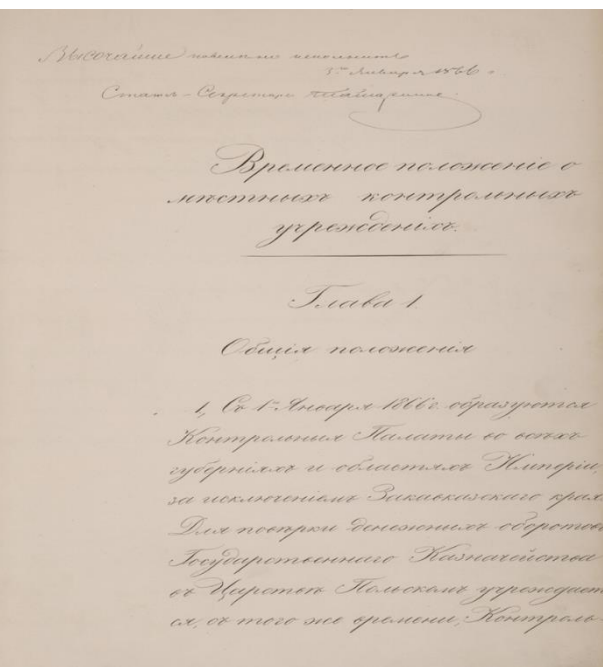 Высочайше повелено исполнить
3го Января 1866 г.
Статсъ-Секретарь
Временное положеніе о
мѣстныхъ контрольныхъ
учрежденіяхъ.
Глава 1
Общія положенія
1, Съ 1го Января 1866 г. образуются
Контрольныя Палаты во всѣхъ
губерніяхъ и областяхъ Имперіи,
за исключеніемъ Закавказскаго края.
Для повѣрки денежныхъ оборотовъ
Государственнаго Казначейства
въ Царствѣ Польскомъ учреждает
ся, съ того же времени, Контроль-